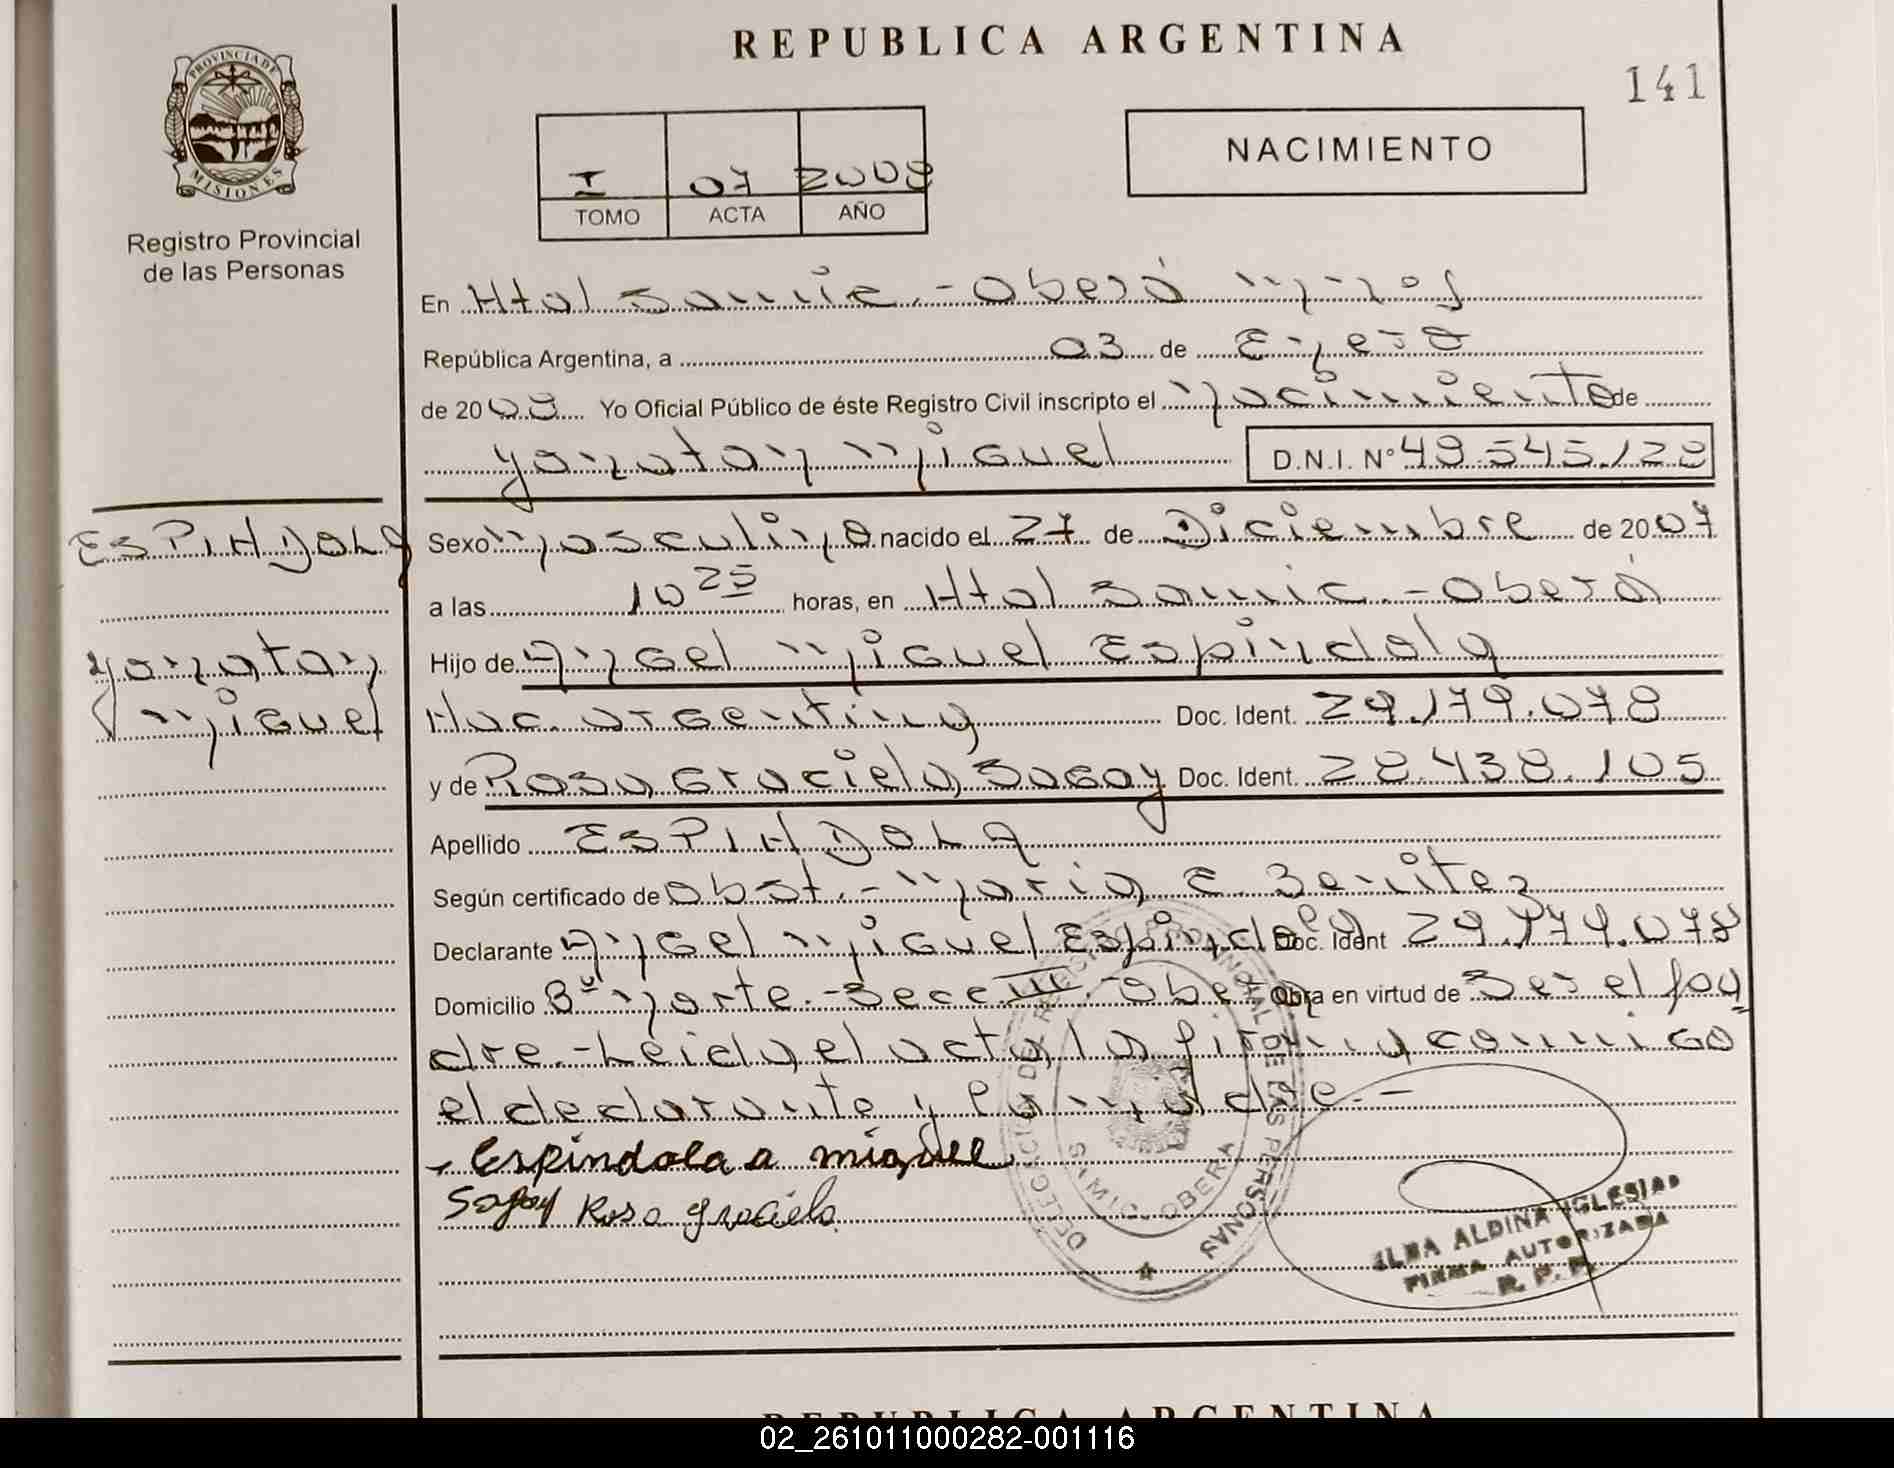 REPUBLICA ARGENTINA
141
PROVINCIA DE MISIONES
Registro Provincial
de las Personas
I 07 2008
TOMO ACTA AÑO
NACIMIENTO
En Htal Samic.-Oberá Mnes
República Argentina, a 03 de Enero
de 2008 Yo Oficial Público de éste Registro Civil inscripto el Nacimiento de
Yonatan Miguel D.N.I. Nº 48.545.128
ESPINDOLA
Yonatan
Miguel
Sexo Masculino nacido el 27 de Diciembre de 2007
a las 10 25 horas, en Htal Samic.-Oberá
Hijo de Angel Miguel Espindola
Nac. argentina Doc. Ident. 29.179.078
y de Rosa Graciela Sagay Doc. Ident. 28.438.105
Apellido ESPINDOLA
Según certificado de Obst.-Maria E. Benitez
Declarante Angel Miguel Espindola Doc. Ident 29.179.078
Domicilio Bº Norte.-Secc III.-Oberá Obra en virtud de Ser el pa=
dre.-Leida el acta, la firma conmigo
el declarante y la madre.-
Espindola a miguel
Sagay Rosa Graciela
DELEGACION DE REGISTRO PROVINCIAL DE LAS PERSONAS
SAMIC-OBERA
ALDINA IGLESIAS
FIRMA AUTORIZADA
R. P. P.
REPUBLICA ARGENTINA
02_261011000282-001116